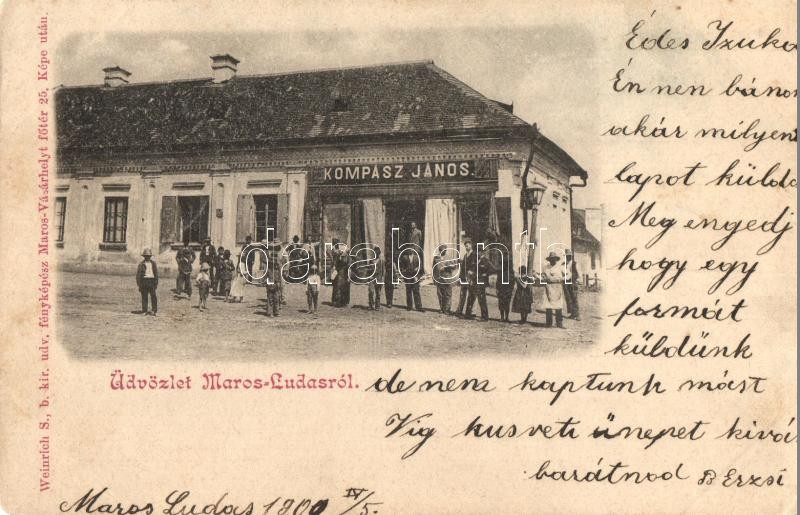 Weinrich S., b. kir. udv. fényképész Maros-Vásárhelyt főtér 25. Képe után.
KOMPÁSZ JÁNOS.
databaseanth
Üdvözlet Maros-Ludasról.
Édes Izuka
Én nen bánom
akár milyen
lapot külde
Meg engedj
hogy egy
formát
küldünk
de nem kaptunk mást
Víg husveti ünnepet kivá
barátnod B Erzsi
Maros Ludas 1900 IV/5.